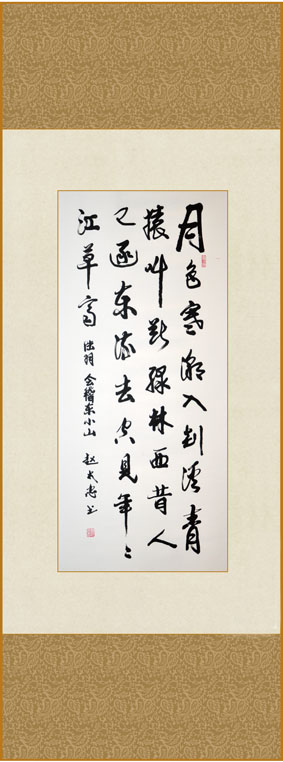 月色寒潮入剡溪青
猿叫断绿林西昔人
已逐东流去空见年々
江草齐 陆羽 会稽东小山 赵 书